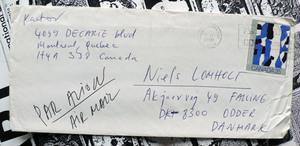 4099 DECARIE blvd
Montreal, Quebec
H4A 3J8 Canada
PAR AVION
AIR MAIL
Niels LOMHOLT
49 FALLING
DK-8300 ODDER
DANMARK
CANADA